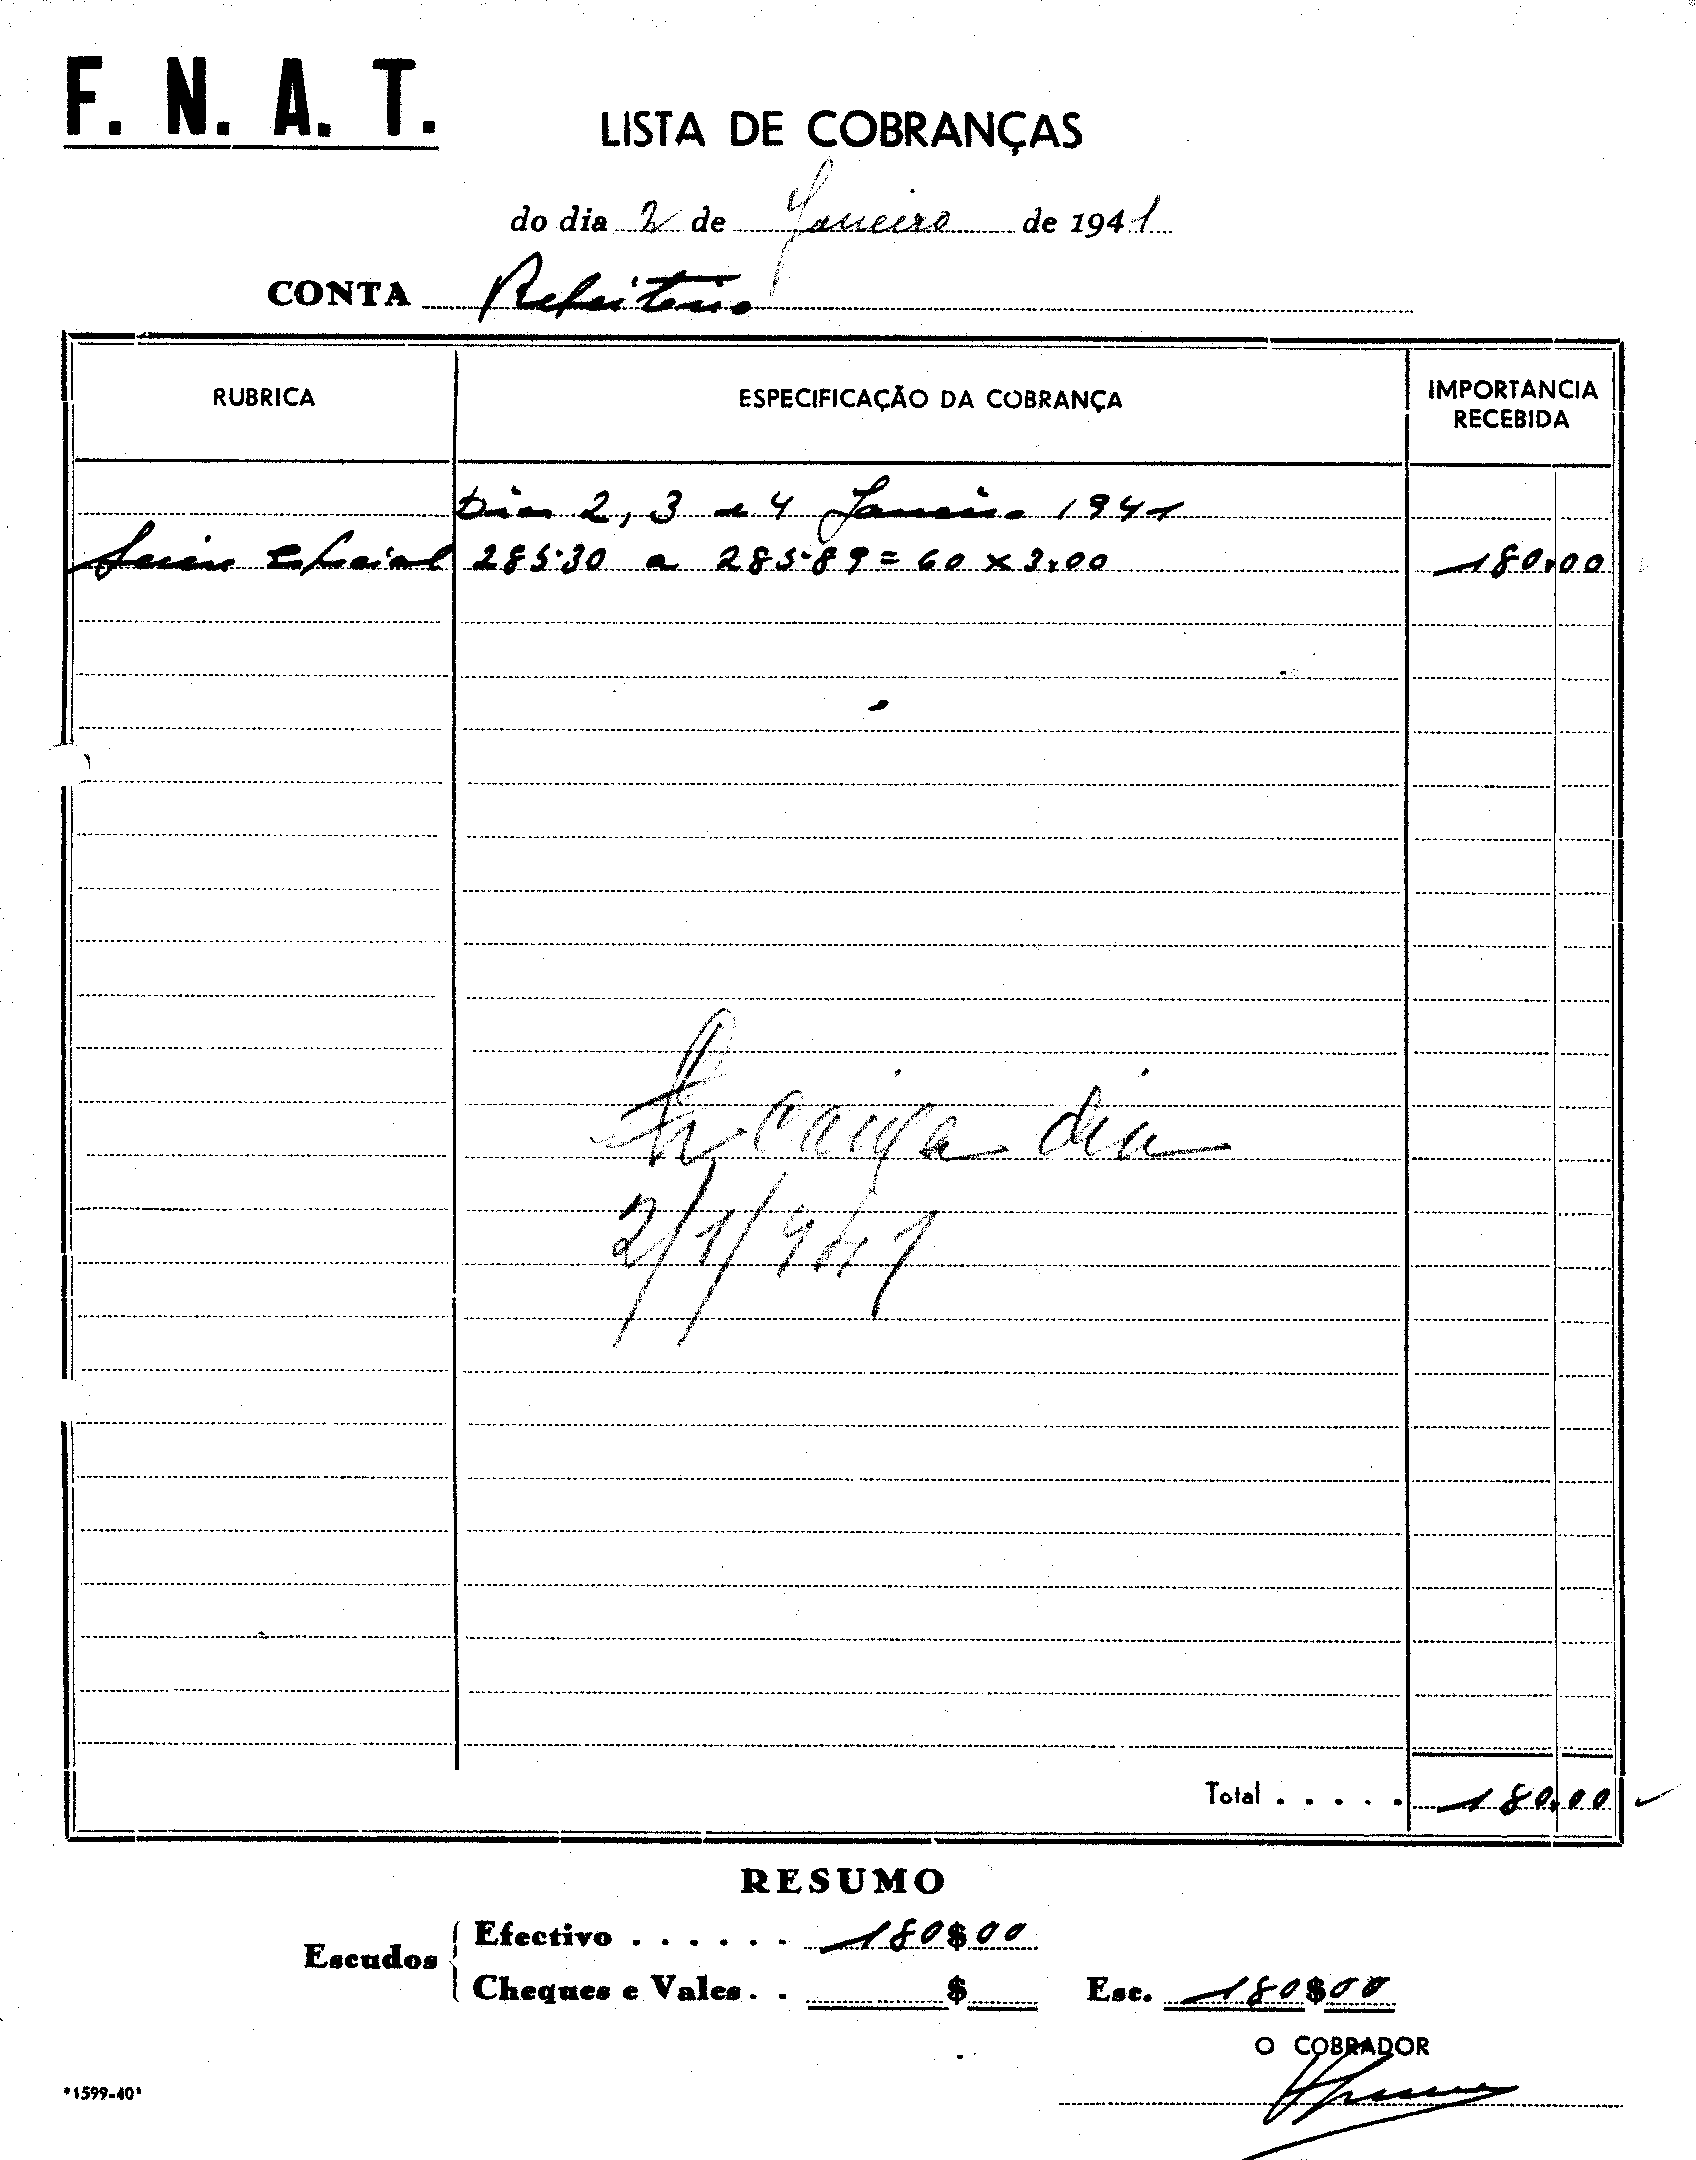 F. N. A. T.
LISTA DE COBRANÇAS
do dia 2 de Janeiro de 1941
CONTA Refeitorio
RUBRICA ESPECIFICAÇÃO DA COBRANÇA IMPORTANCIA RECEBIDA
Dias 2, 3 e 4 Janeiro 1941
especial 28530 a 28589 = 60 x 3.00 180.00
caixa dia
2/1/941
Total . . . . . 180.00
RESUMO
Escudos
Efectivo . . . . . . 180$00
Cheques e Vales . . $ Esc. 180$00
O COBRADOR
"1599-40"